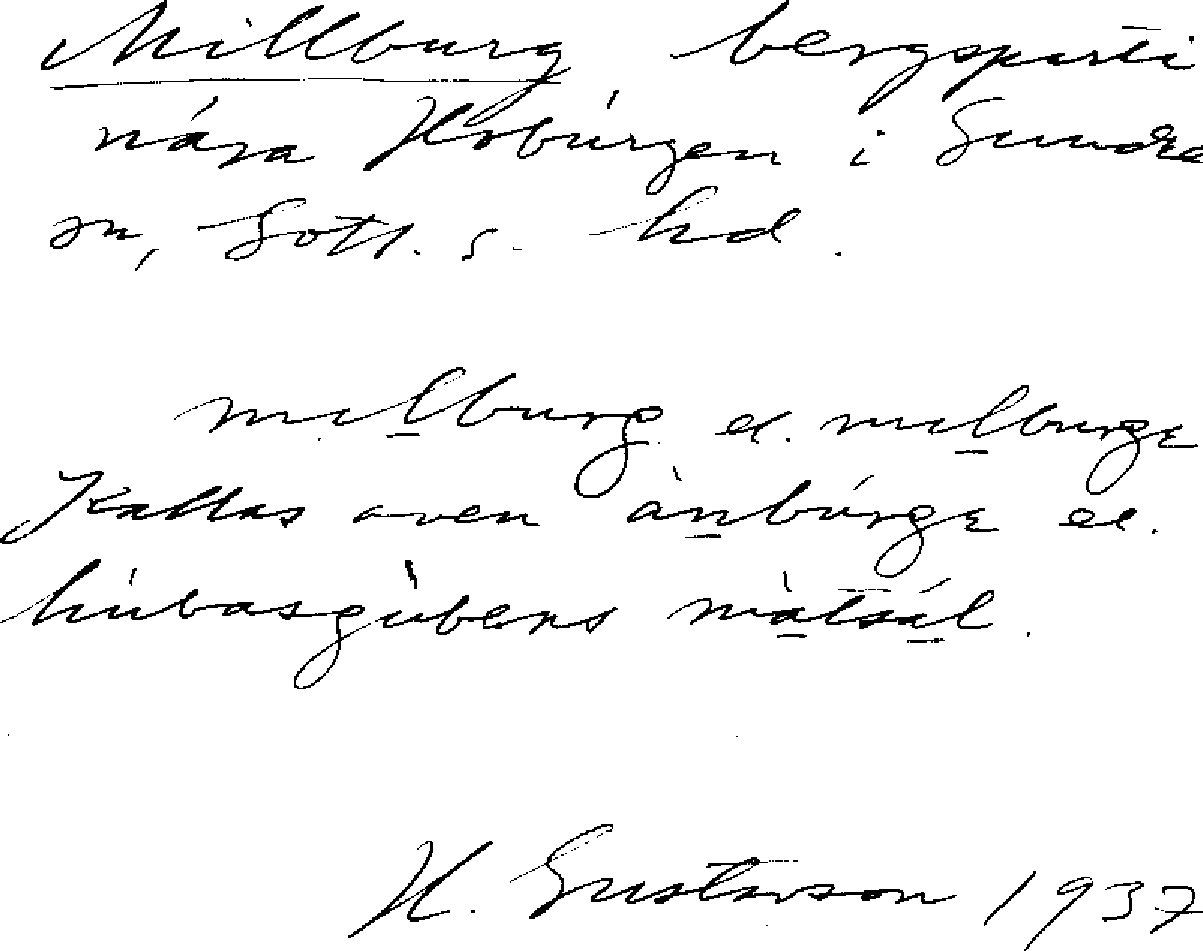 Millburg bergsparti
nära Hoburgen i Sundre
sn, Gotl. s. hd.
milburg el. milburgɛ
Kallas även ànbúrgɛ el.
hùbasgùbens màtsál.
H. Gustavson 1937